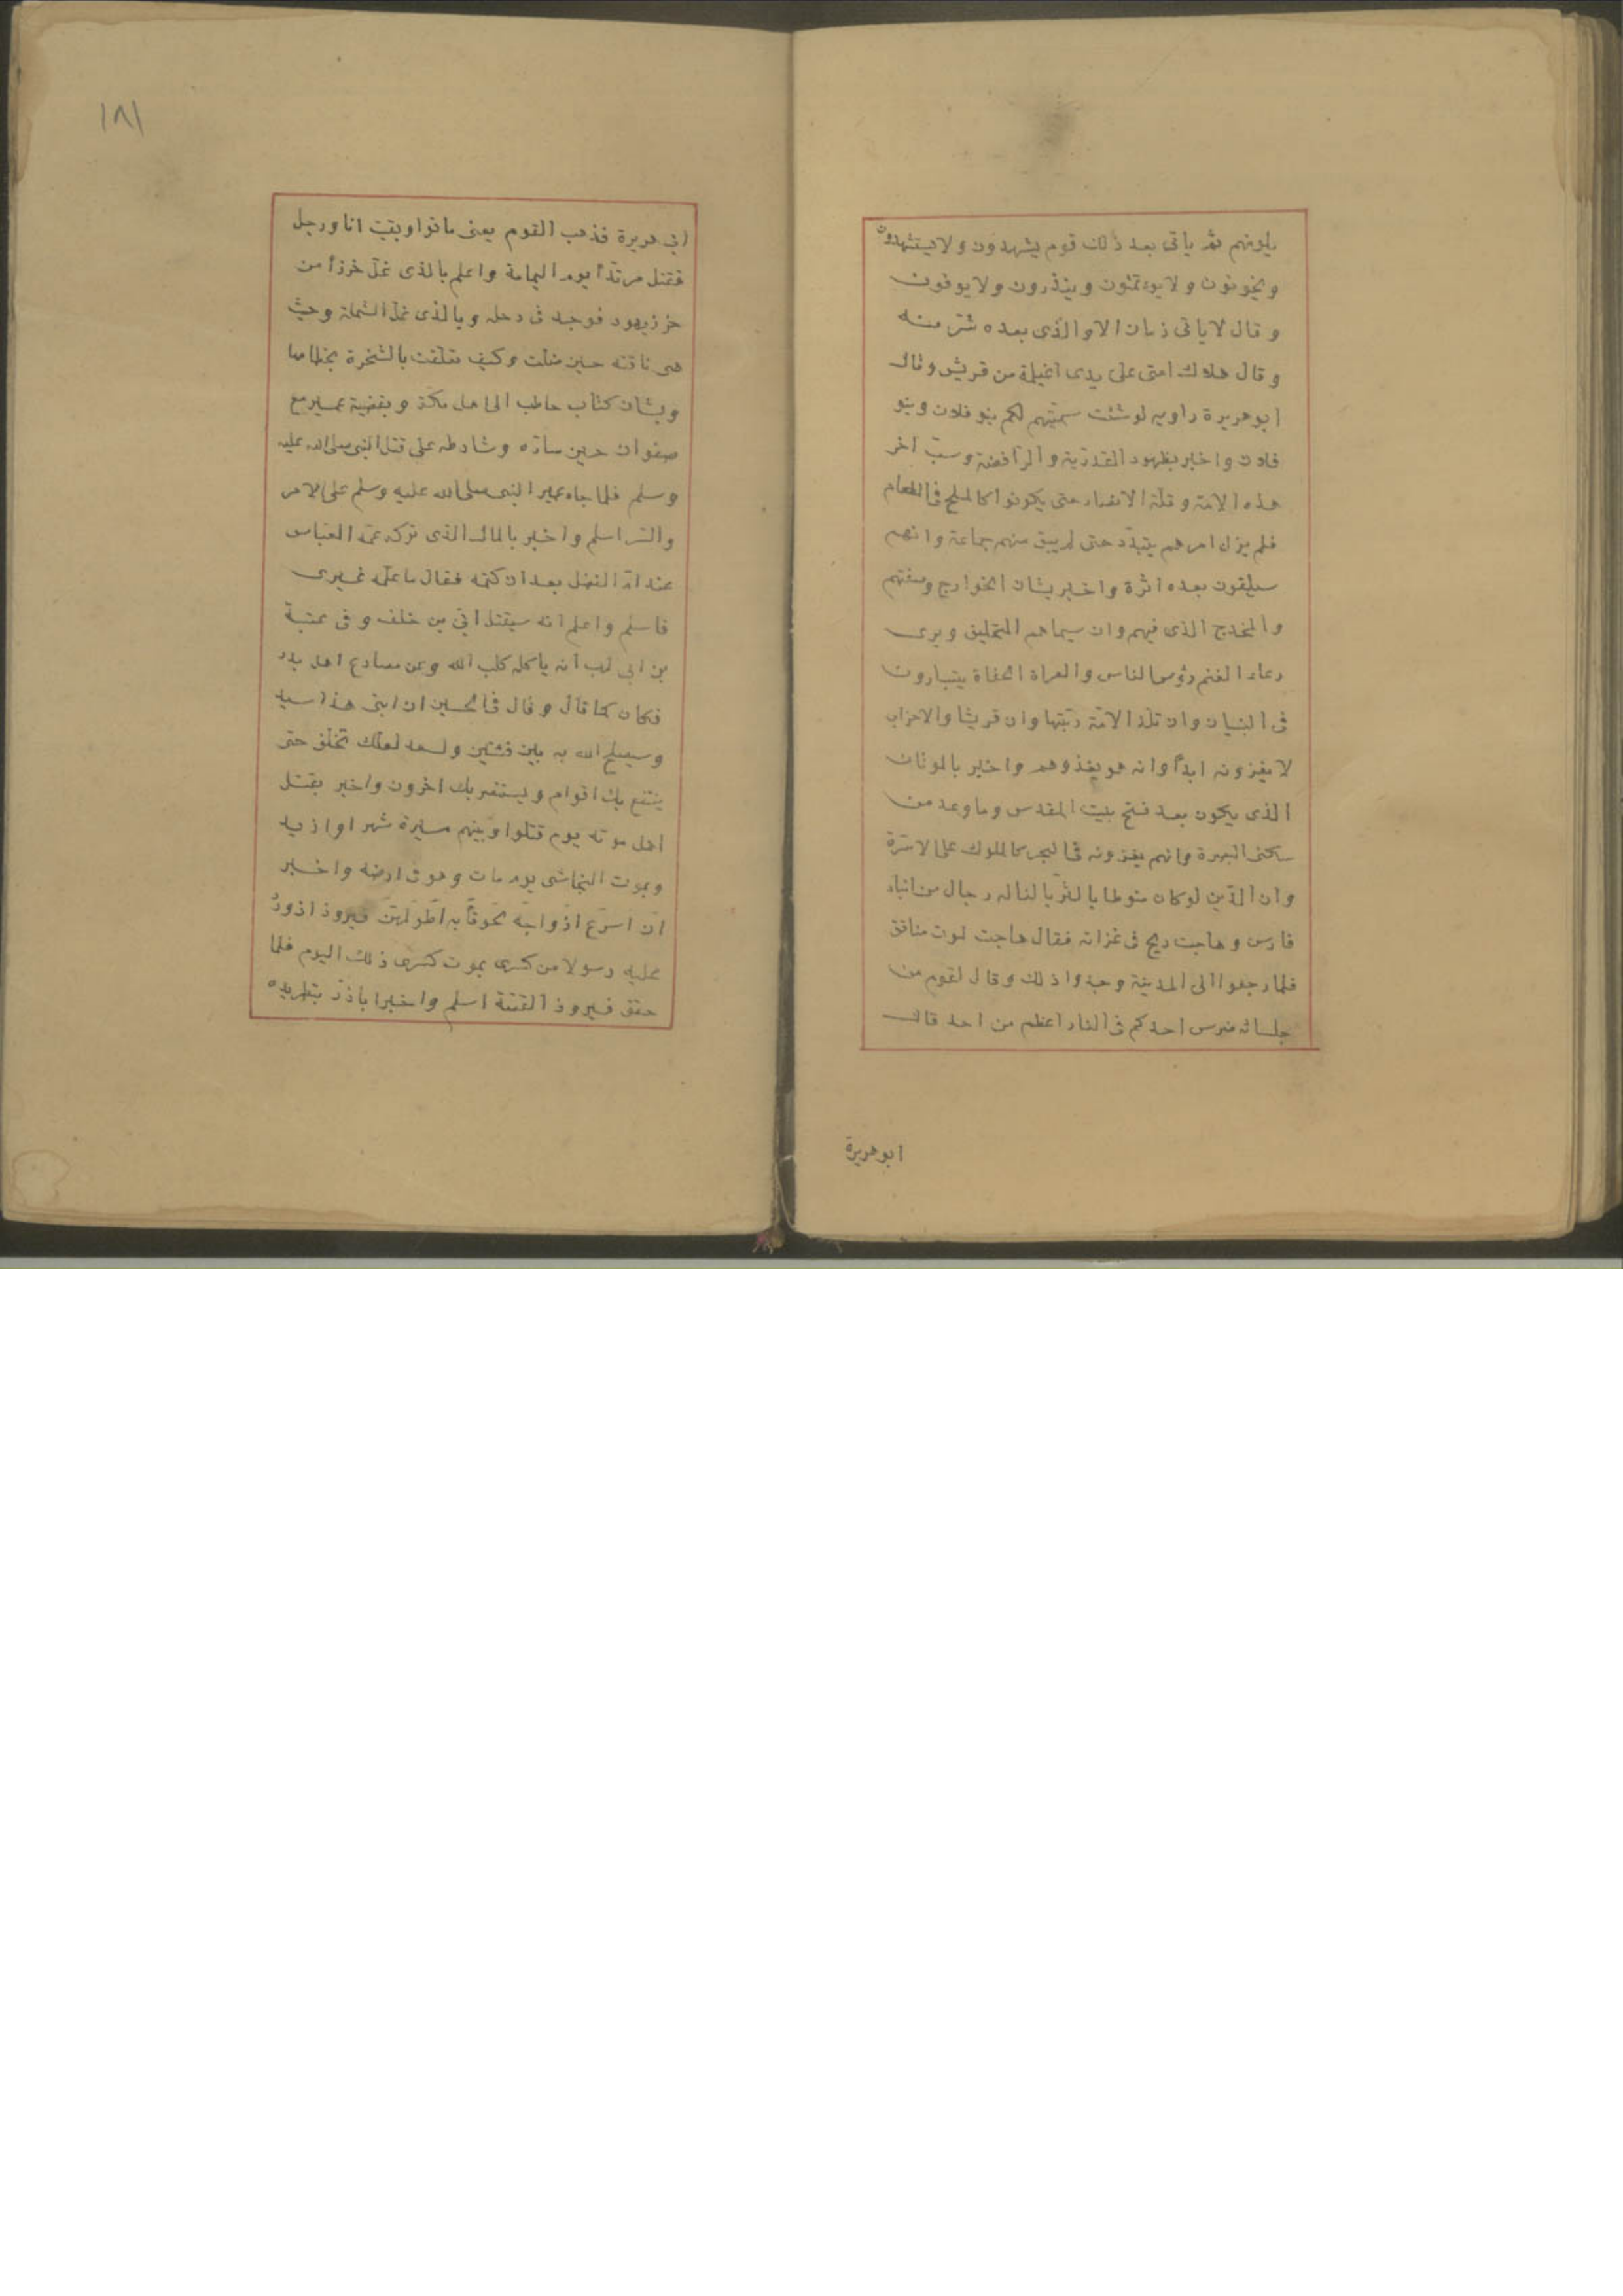 يلونهم ثم ياتى بعد ذلك قوم يشهدون ولا يستشهدون
ويخونون ولا يوءتمنون وينذرون ولا يوفون
وقال لا ياتى زمان الا والذى بعده شر منه
وقال هلاك امتى على يدى اغيلمة من قريش وقال
ابوهريرة راويه لو شئت سميتهم لكم بنو فلان وبنو
فلان واخبر بظهور القدرية والرافضة وسب اخر
هذه الامة وقلة الانصار حتى يكونوا كالملح فى الطعام
فلم يزل امرهم يتبدد حتى لم يبق منهم جماعة وانهم
سيلقون بعده اثرة واخبر بشان الخوارج وصفتهم
والمخدج الذى فيهم وان سيماهم التحليق ويرى
رعاء الغنم رؤس الناس والعراة الحفاة يتبارون
فى البنيان وان تلد الامة ربتها وان قريشا والاحزاب
لا يغزونه ابدا وانه هو يغزوهم واخبر بالموتان
الذى يكون بعد فتح بيت المقدس وما وعد من
سكنى البصرة وانهم يغزونه فى البحر كالملوك على الاسرة
وان الدين لو كان منوطا بالثريا لناله رجال من ابناء
فارس وهاجت ريح فى غزاته فقال هاجت لموت منافق
فلما رجعوا الى المدينة وجدوا ذلك وقال لقوم من
جلسائه ضرس احدكم فى النار اعظم من احد قال
ابوهريرة
١٨١
ابى هريرة فذهب القوم يعنى ماتوا وبقيت انا ورجل
فقتل مرتدا يوم اليمامة واعلم بالذى غل خرزا من
خرز يهود فوجد فى رحله وبالذى غل الشملة وحيث
هى ناقته حين ضلت وكيف تعلقت بالشجرة بخطامها
وبشان كتاب حاطب الى اهل مكة وبقضية عمير مع
صفوان حين ساره وشارطه على قتل النبى صلى الله عليه
وسلم فلما جاء عمير النبى صلى الله عليه وسلم على الامر
والسر اسلم واخبر بالمال الذى تركه عمه العباس
عند ام الفضل بعد ان كتمه فقال ما علمه غيرى
فاسلم واعلم انه سيقتل ابى بن خلف وفى عتبة
بن ابى لهب انه ياكله كلب الله وعن مصارع اهل بدر
فكان كما قال وقال فى الحسين ان ابنى هذا سيد
وسيصلح الله به بين فئتين ولسعد لعلك تخلف حتى
ينتفع بك اقوام ويستضر بك اخرون واخبر بقتل
اهل موته يوم قتلوا وبينهم مسيرة شهر او ازيد
وبموت النجاشى يوم مات وهو فى ارضه واخبر
ان اسرع ازواجه لحوقا به اطولهن فيروز اذ ورد
عليه رسولا من كسرى بموت كسرى ذلك اليوم فلما
حقق فيروز القصة اسلم واخبر اباذر بتطريده